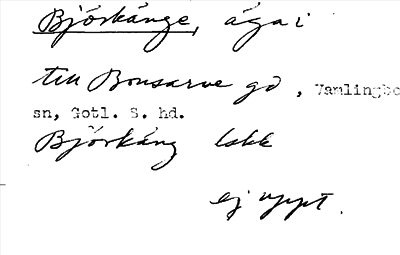 Björkänge, äga i
till Bonsarve gd, Vamlingbo
sn, Gotl. S. hd.
Björkäng lskk
ej uppt.